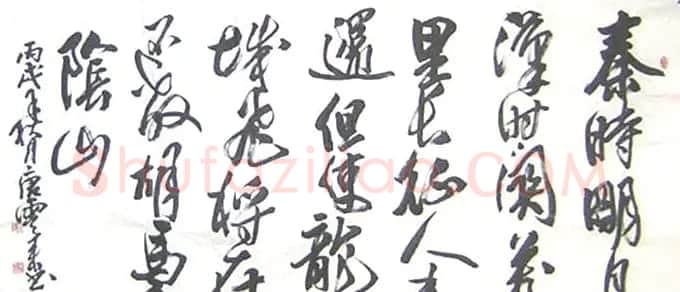 秦時明月
漢时關萬
里长征人未
還但使龍
城飛將在
不教胡馬
陰山
丙戌年秋月唐雲来书
Shufaziliao.COM